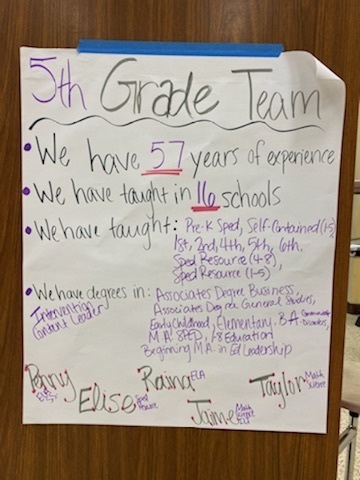 5th Grade Team
• We have 57 years of experience
• We have taught in 16 schools
• We have taught: Pre-K Sped, Self-Contained (1-5)
1st, 2nd, 4th, 5th, 6th,
Sped Resource (4-8),
Sped Resource (1-5),
• We have degrees in: Associates Degree Business,
Intervention
Content Leader
Associates Degree General Studies,
Early Childhood, Elementary, B.A. Communication
Disorders,
M.A. SPED, 1-8 Education
Beginning M.A. in Ed Leadership
Penny
Elise Sped
Raina ELA
Jaime Math
Taylor Math
Science